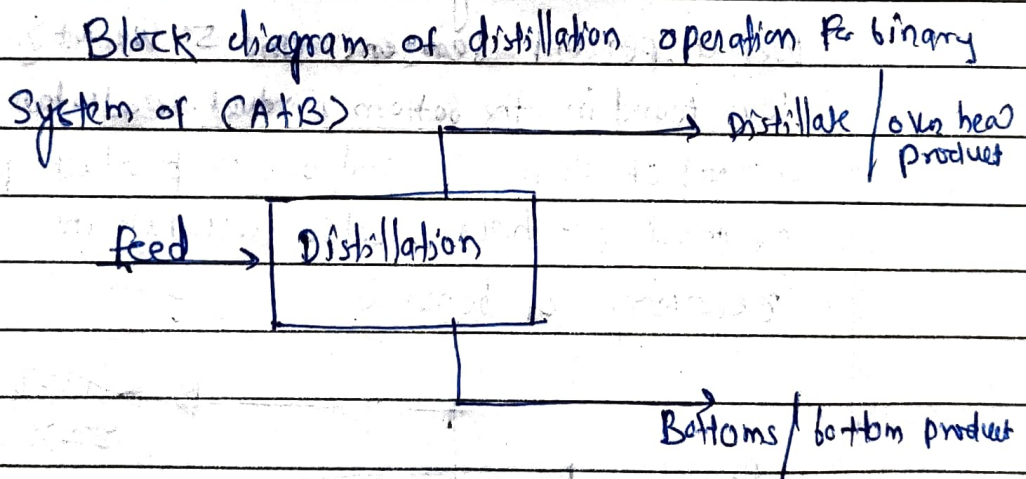 Block diagram of distillation operation for binary
System of (A+B)
Distillate / over head
product
feed
Distillation
Bottoms / bottom product